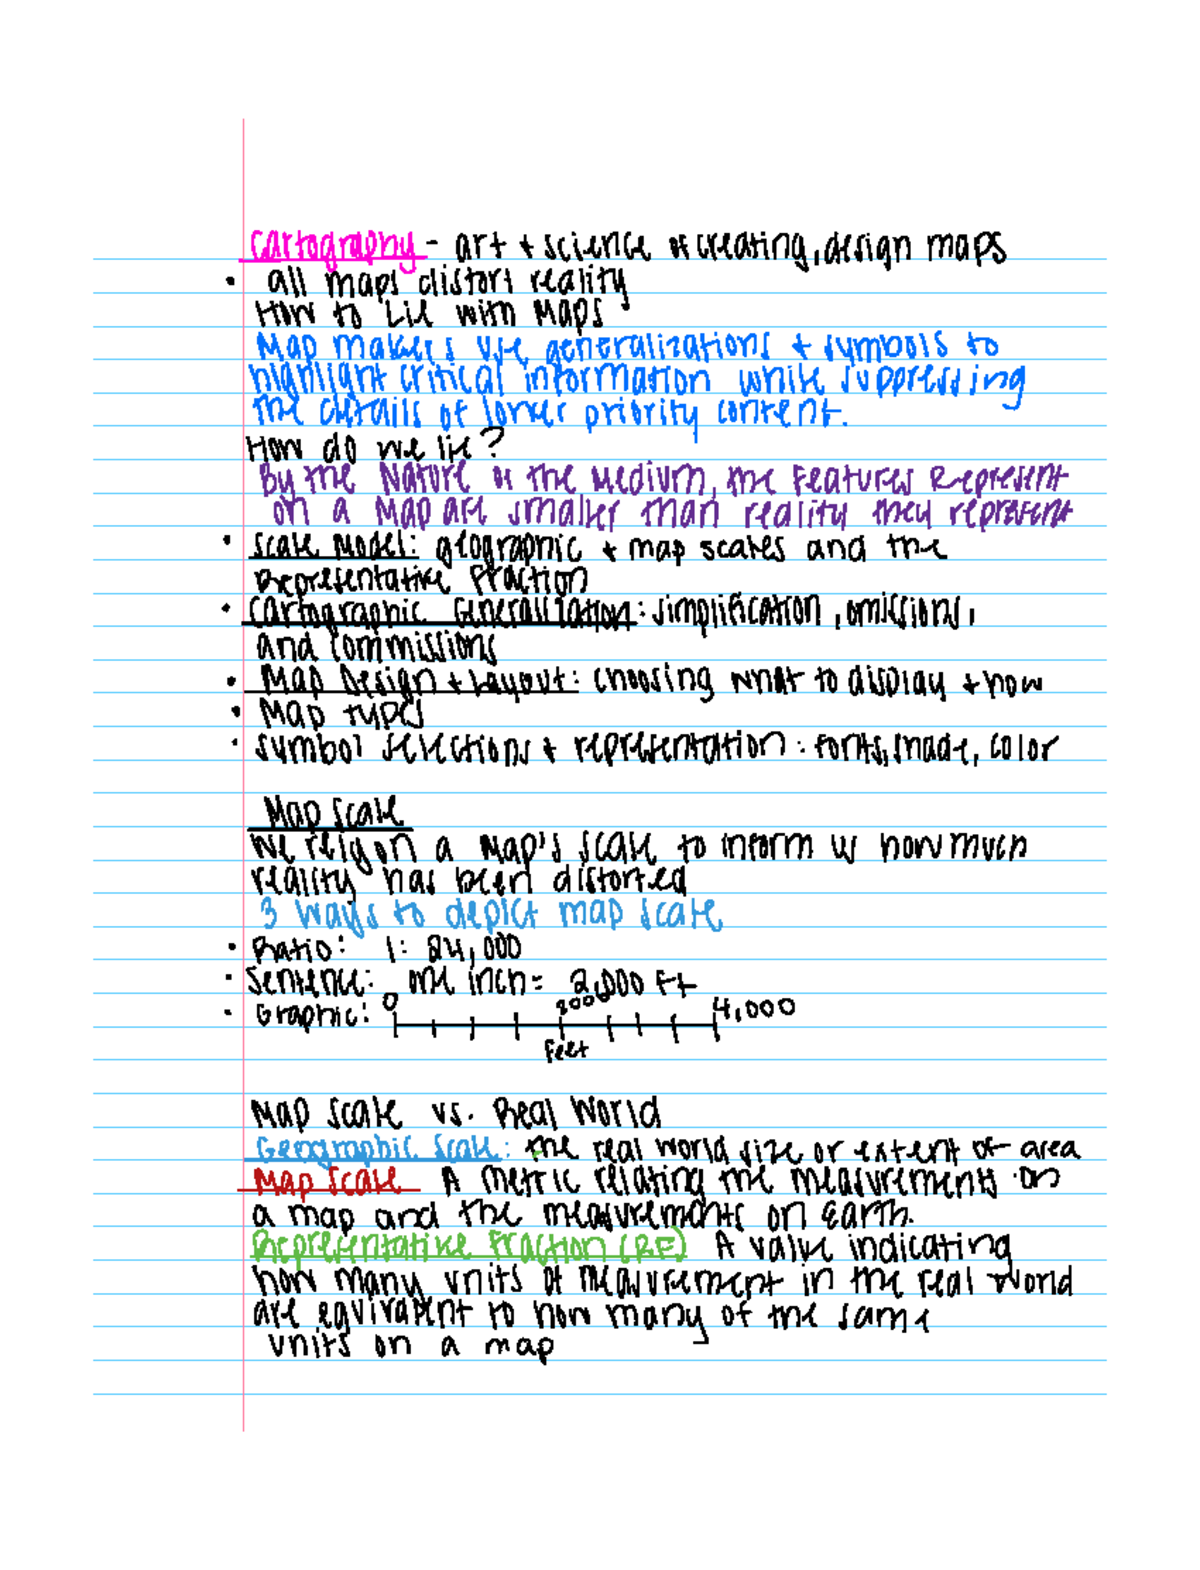 Cartography - art + science of creating, design maps
• all maps distort reality
How to Lie with Maps
Map makers use generalizations + symbols to
highlight critical information while suppressing
the details of lower priority content.
How do we lie?
By the Nature of the Medium, the Features Represent
on a Map are smaller than reality they represent
• Scale Model: geographic + map scales and the
Representative Fraction
• Cartographic Generalization: simplification, omissions,
and commissions
• Map Design + Layout: choosing what to display + how
• Map types
• symbol selections + representation: fonts, shade, color
Map Scale
We rely on a Map's scale to inform us how much
reality has been distorted
3 ways to depict map scale
• Ratio: 1: 24,000
• Sentence: one inch = 2,000 Ft
• Graphic: 0 2000 4,000
Feet
Map Scale vs. Real World
Geographic Scale: the real world size or extent of area
Map Scale A metric relating the measurements on
a map and the measurements on Earth.
Representative Fraction (RF) A value indicating
how many units of measurement in the real world
are equivalent to how many of the same
units on a map